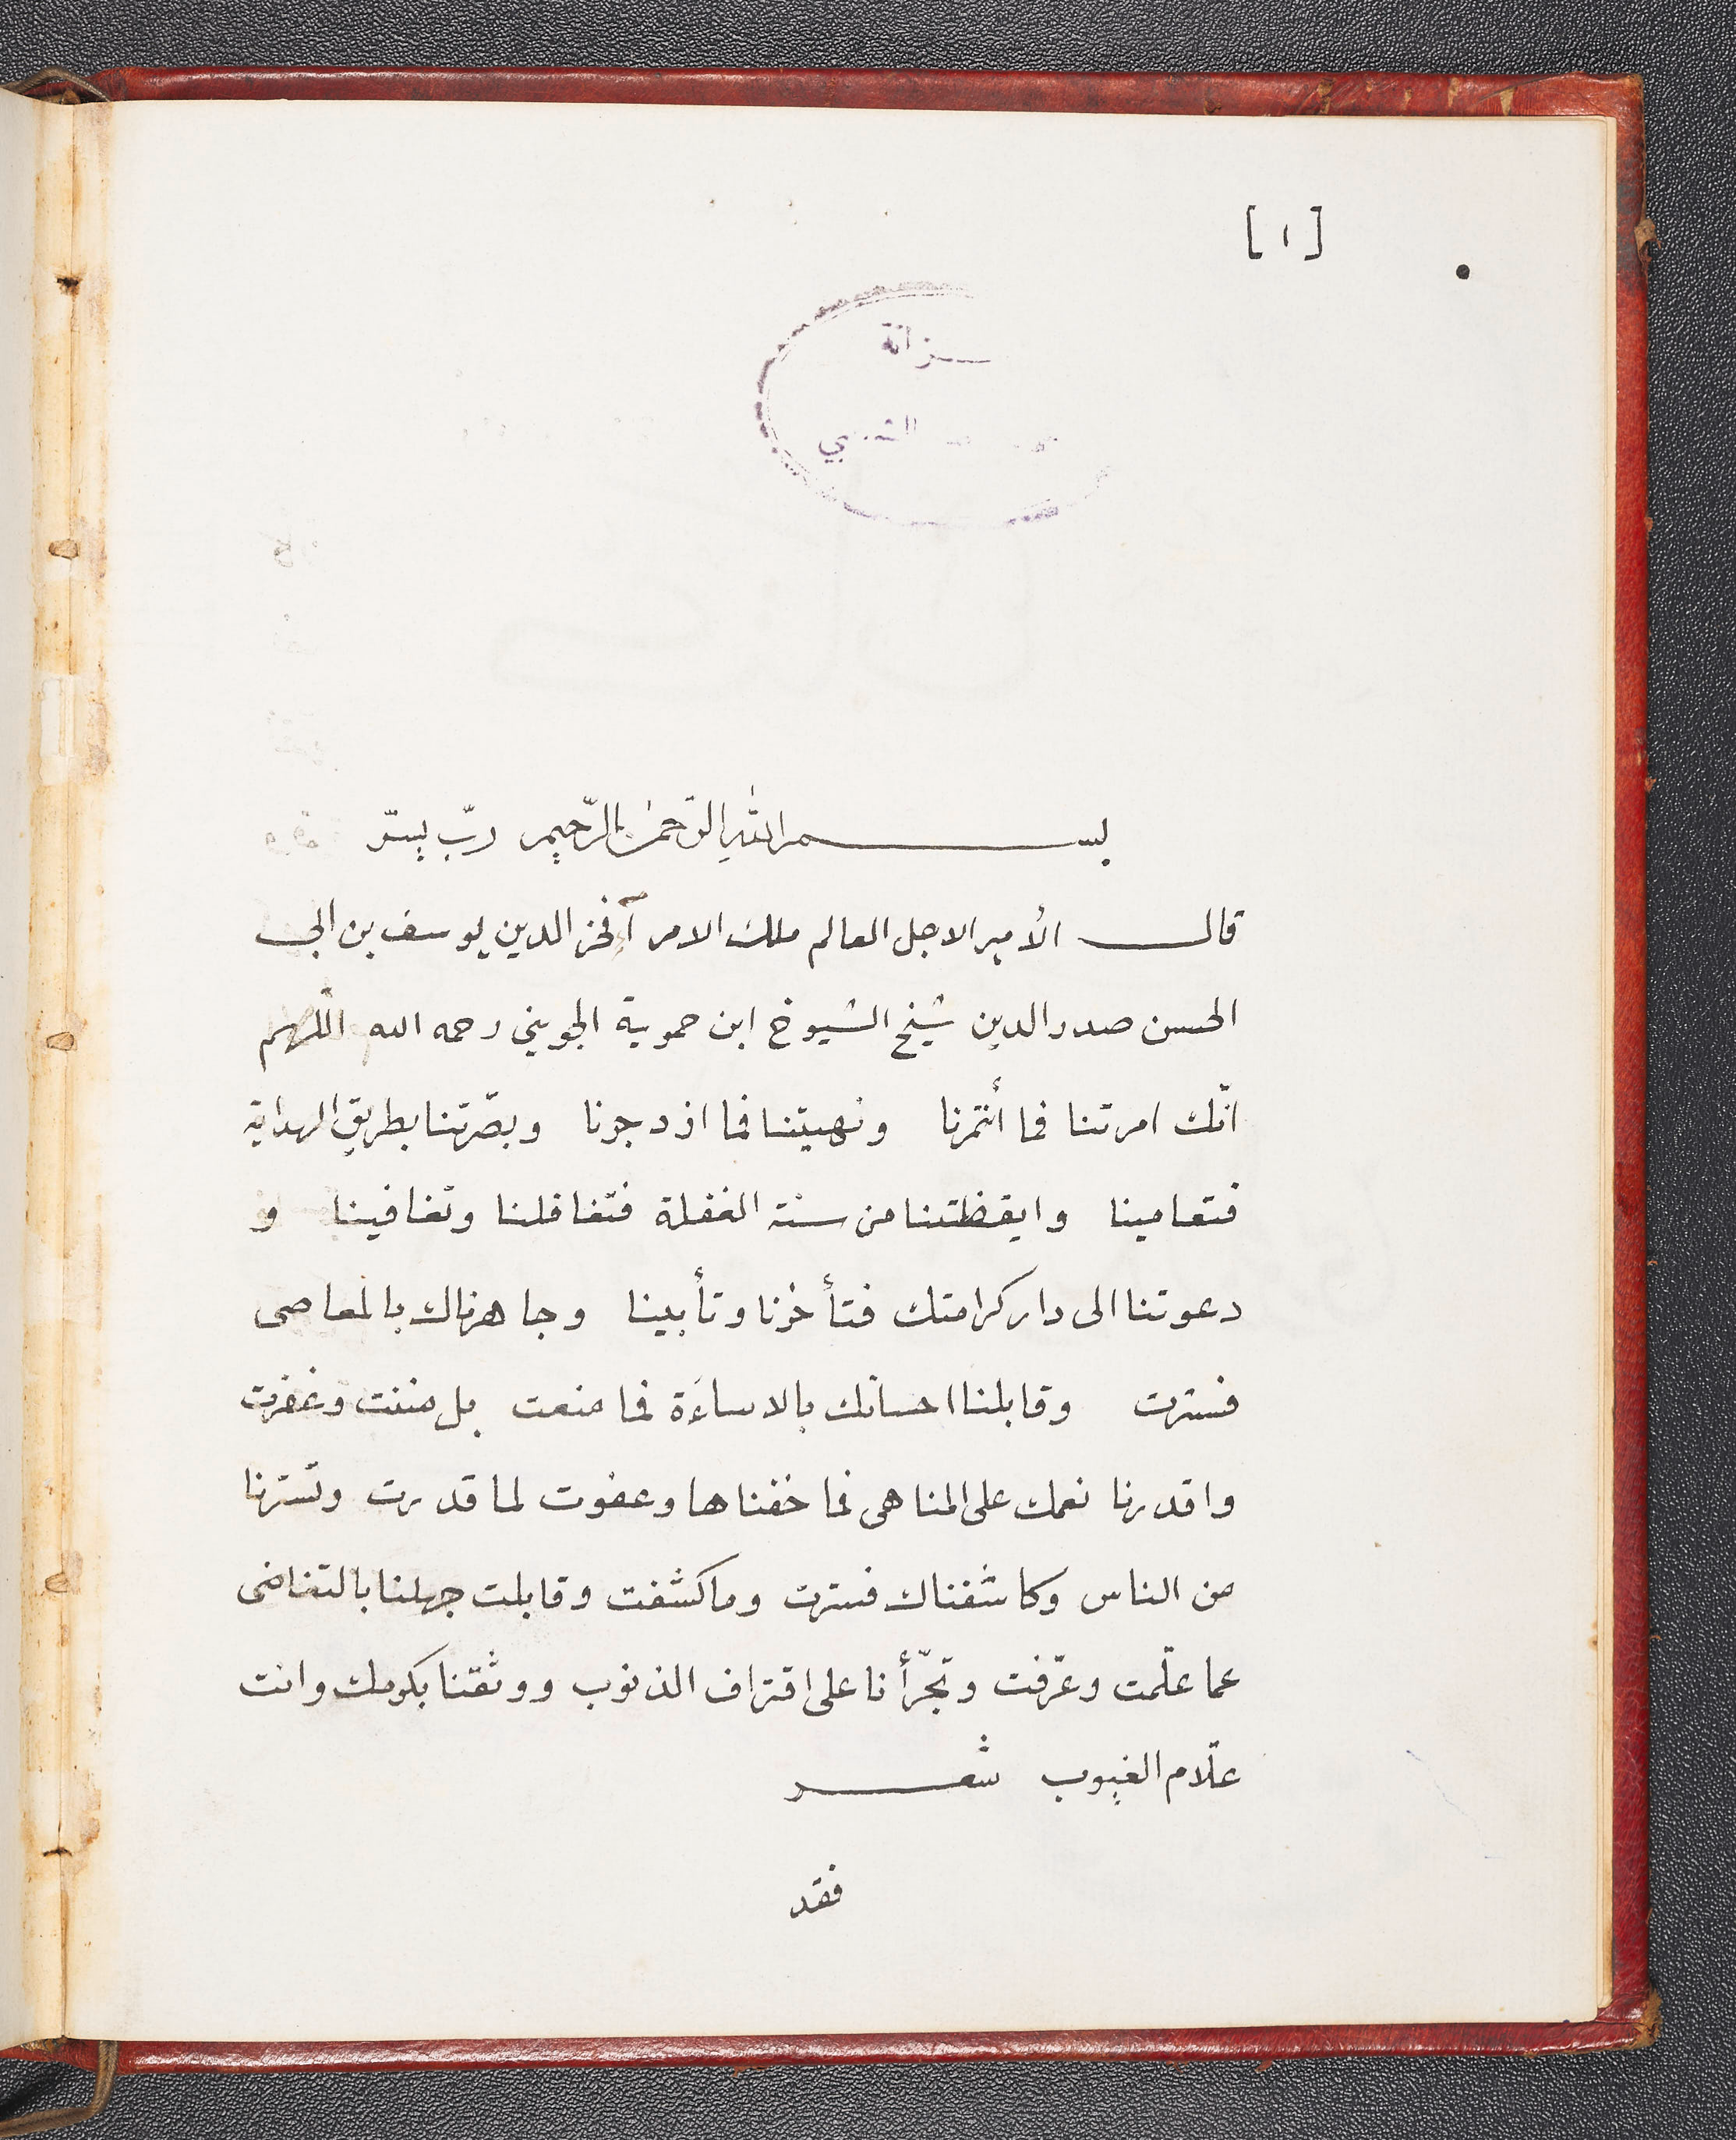 [١]
بسم الله الرّحمن الرّحيم ربّ يسّر
قال الأمير الاجل العالم ملك الامرآ فخر الدين يوسف بن ابي
الحسن صدر الدين شيخ الشيوخ ابن حموية الجويني رحمه الله اللّهم
انّك امرتنا فما أئتمرنا ونهيتنا فما ازدجرنا وبصّرتنا بطريق الهداية
فتعامينا وايقظتنا من سنة الغفلة فتغافلنا وتغافينا و
دعوتنا الى دار كرامتك فتأخرنا وتأبينا وجاهرناك بالمعاصى
فسترت وقابلنا احسانك بالاساءَة فما منعت بل مننت وغفرت
واقدرنا نعمك على المناهى فما خفناها وعفوت لما قدرت وتسترنا
من الناس وكاشفناك فسترت وما كشفت وقابلت جهلنا بالتغاضى
عما علّمت وعرّفت وتجرّأنا على اقتراف الذنوب ووثقنا بكرمك وانت
علّام الغيوب شعر
فقد